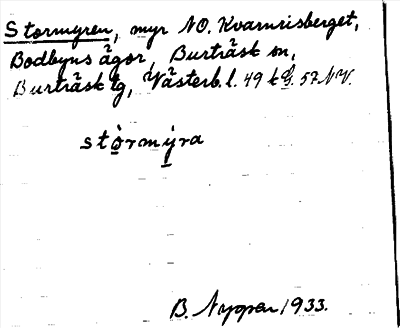 Stormyren, myr NO. Kvarnrisberget,
Bodbyns ägor, Burträsk sn,
Burträsk tg, Västerb. l. 49 k G. 57 NV.
stòrmýra
B. Nyopen 1933.